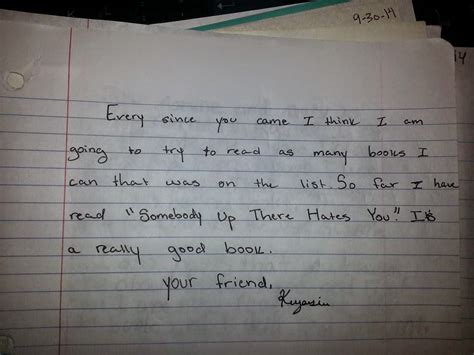 9-30-14
14
Every since you came I think I am
going to try to read as many books I
can that was on the list. So far I have
read "Somebody Up There Hates You." Is
a really good book.
your friend,